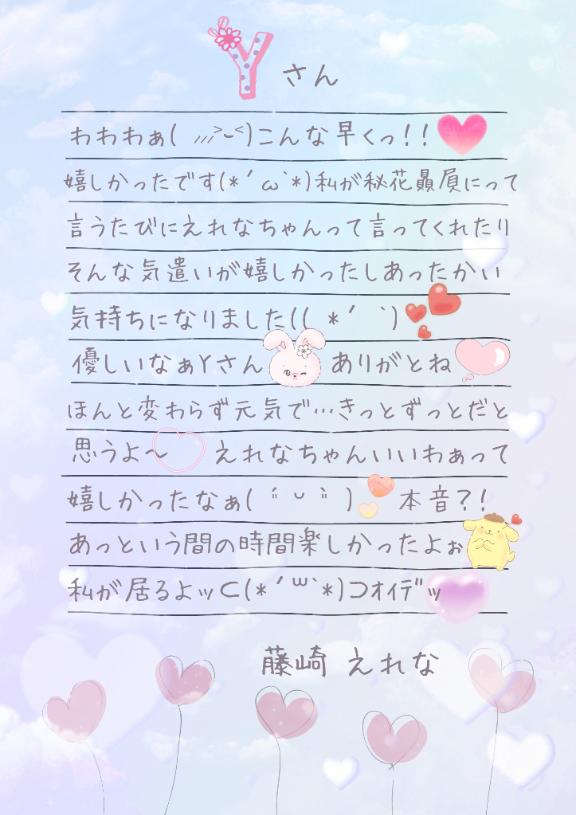 Yさん
わわわぁ( ⸝⸝⸝>⌣<)こんな早くっ!!
嬉しかったです(*´ω`*)私が秘花贔屓にって
言うたびにえれなちゃんって言ってくれたり
そんな気遣いが嬉しかったしあったかい
気持ちになりました(( *´ `)
優しいなぁYさん ありがとね
ほんと変わらず元気で…きっとずっとだと
思うよ〜 えれなちゃんいいわぁって
嬉しかったなぁ( ˶ ᵕ ˶ ) 本音?!
あっという間の時間楽しかったよぉ
私が居るよッ⊂(*´꒳`*)⊃ｵｲﾃﾞッ
藤崎 えれな